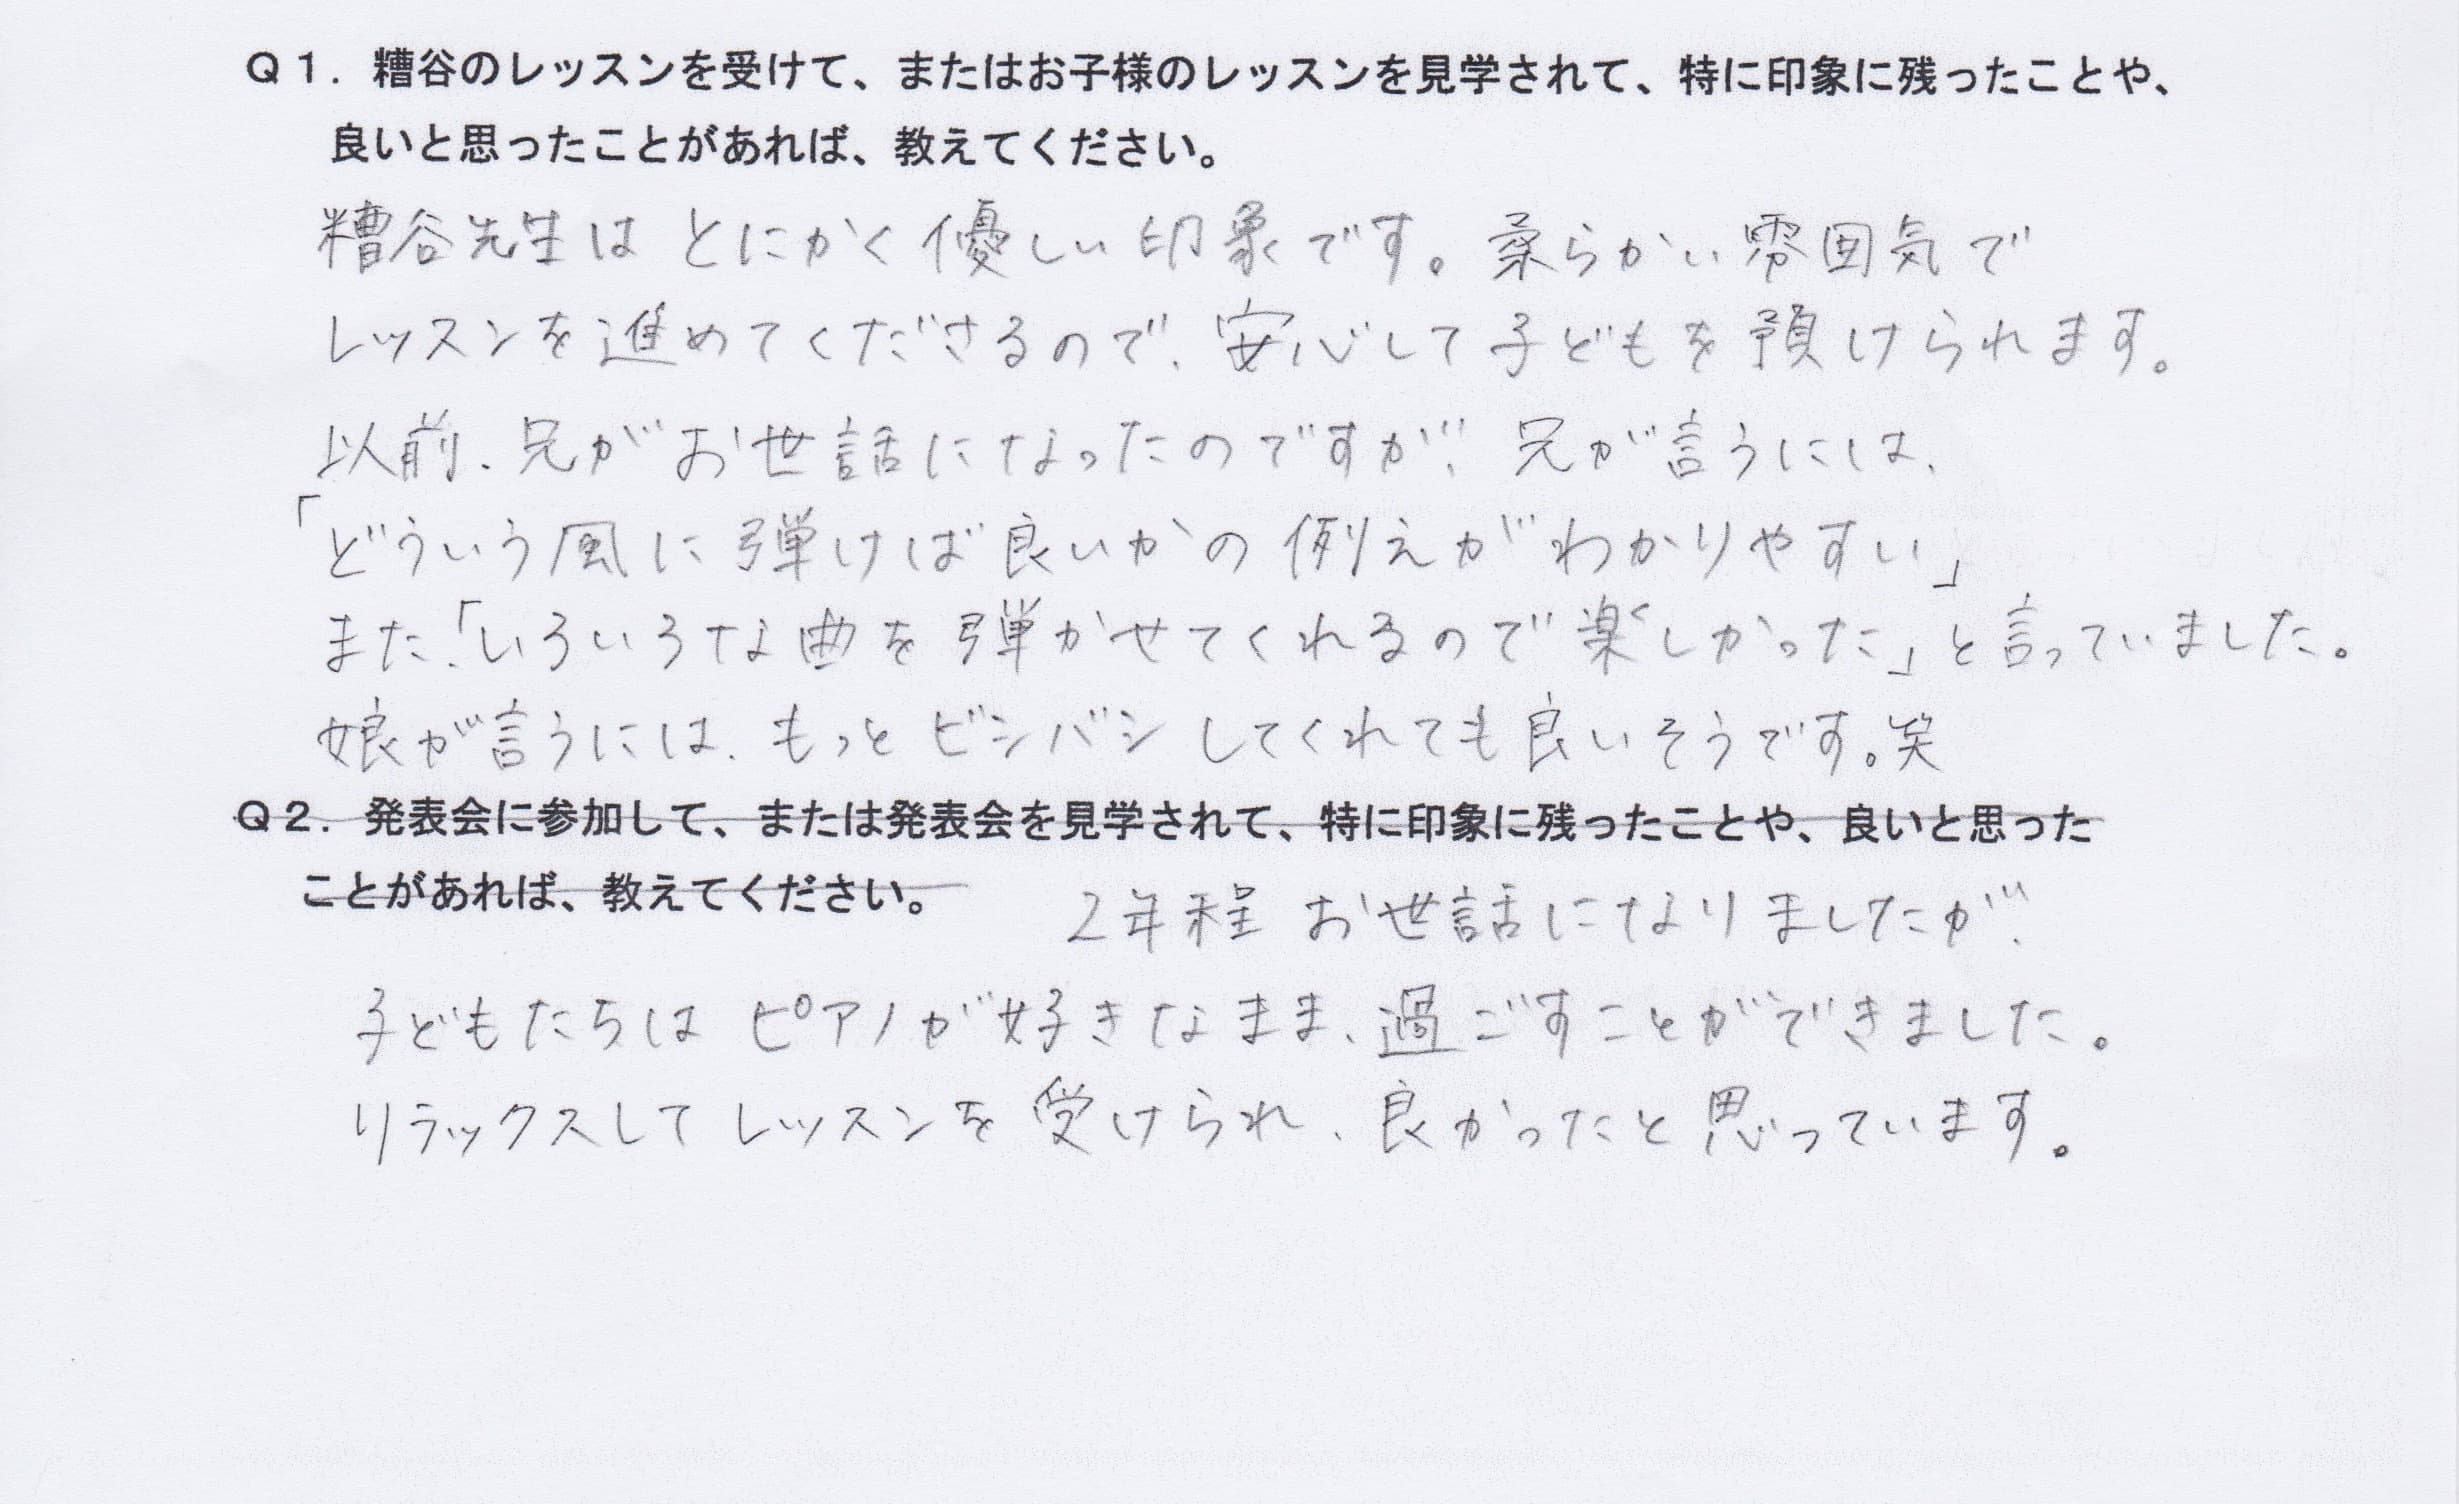 Ｑ１．糟谷のレッスンを受けて、またはお子様のレッスンを見学されて、特に印象に残ったことや、
良いと思ったことがあれば、教えてください。
糟谷先生は とにかく優しい印象です。柔らかい雰囲気で
レッスンを進めてくださるので、安心して子どもを預けられます。
以前、兄がお世話になったのですが、兄が言うには、
「どういう風に弾けば良いかの例えがわかりやすい」
また、「いろいろな曲を弾かせてくれるので楽しかった」と言っていました。
娘が言うには、もっとビシバシしてくれても良いそうです。笑
Ｑ２．発表会に参加して、または発表会を見学されて、特に印象に残ったことや、良いと思った
ことがあれば、教えてください。
2年程 お世話になりましたが、
子どもたちは ピアノが好きなまま、過ごすことができました。
リラックスしてレッスンを受けられ、良かったと思っています。